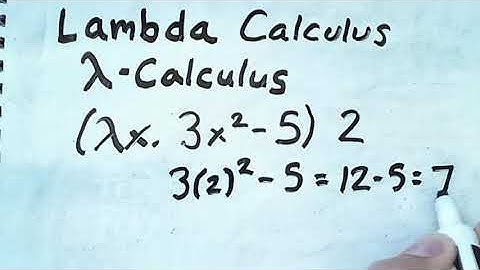 Lambda Calculus
λ-Calculus
(λx. 3x²-5) 2
3(2)²-5=12-5=7